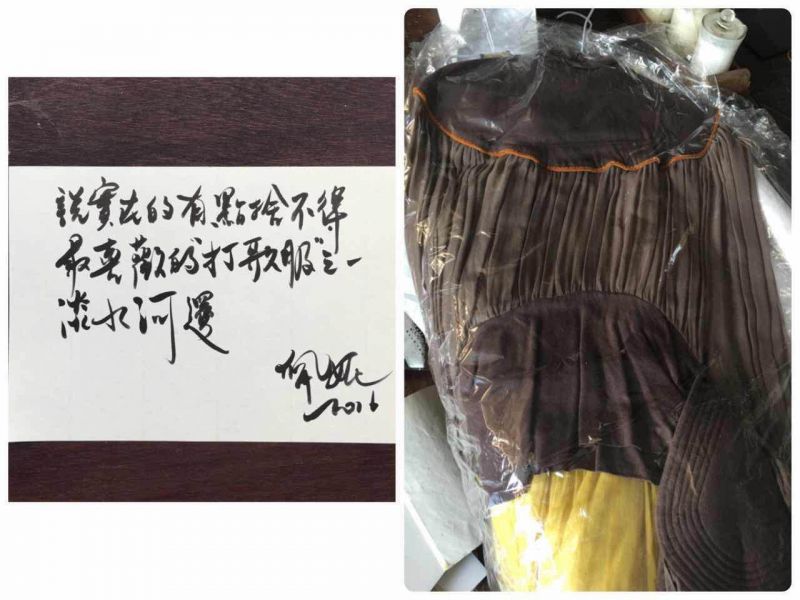 說實在的有點捨不得
最喜歡的"打歌服"之一
淡水河邊
2016